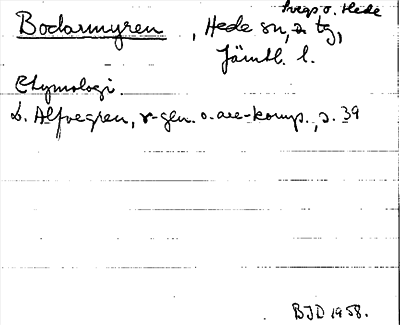 Svegs o. Hede
Bodarmyren, Hede sn, tg,
Jämtl. l.
Etymologi.
L. Alfvegren, r-gen. o. are-komp., s. 39
BJD 1958.